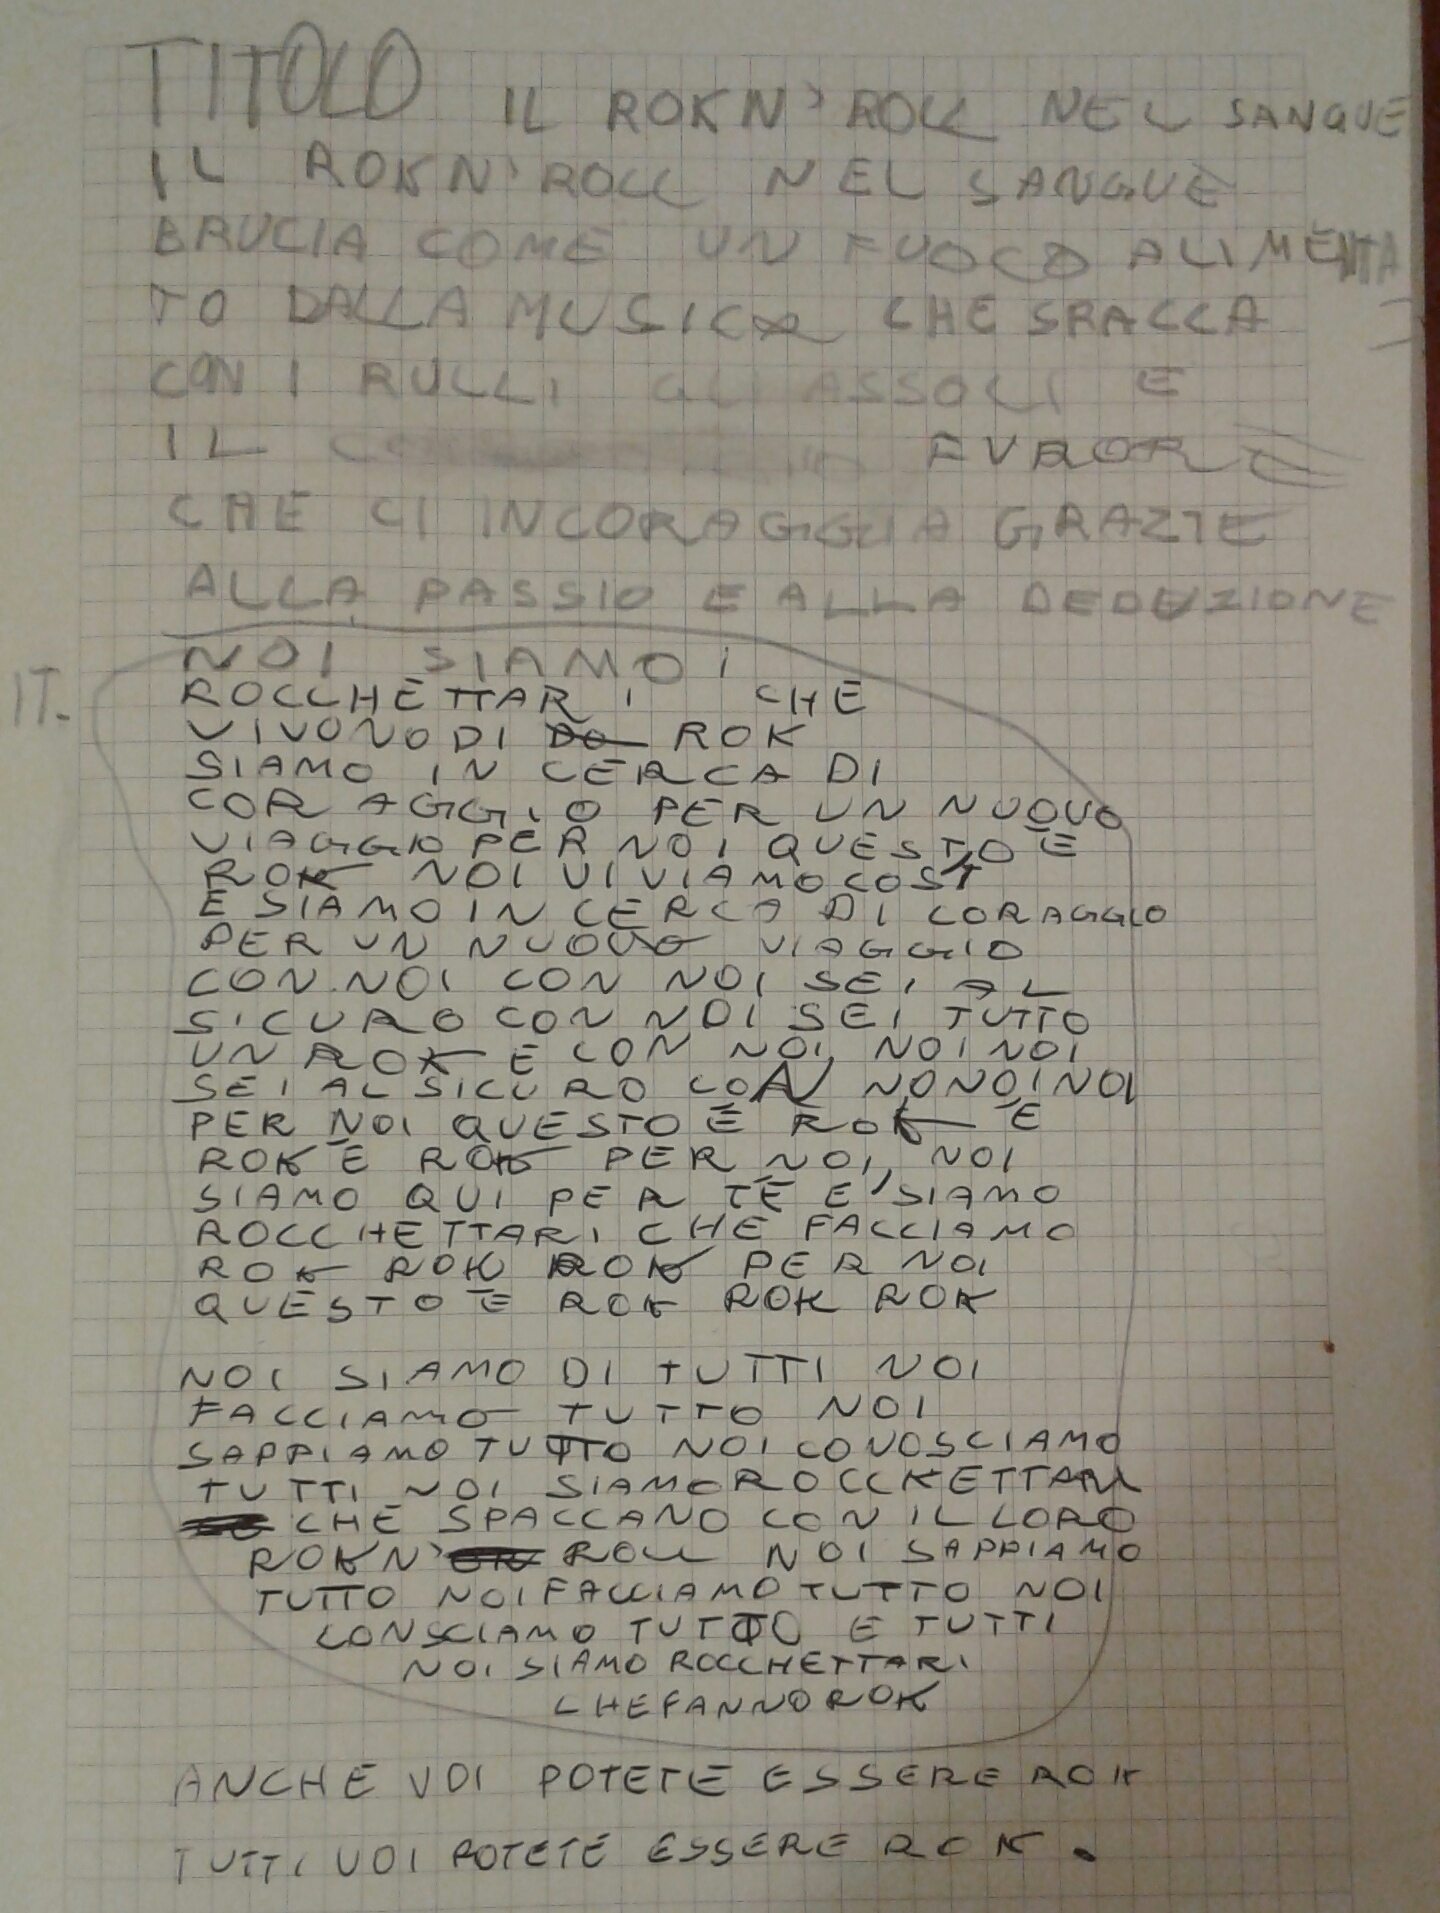 TITOLO IL ROKN'ROLL NEL SANGUE
IL ROKN'ROLL NEL SANGUE
BRUCIA COME UN FUOCO ALIMENTA
TO DALLA MUSICA CHE SPACCA
CON I RULLI GLI ASSOLI E
IL FUROR
CHE CI INCORAGGIA GRAZIE
ALLA PASSIO E ALLA DEDUZIONE
NOI SIAMO I
IT.
ROCCHETTARI CHE
VIVONO DI ROK
SIAMO IN CERCA DI
CORAGGIO PER UN NUOVO
VIAGGIO PER NOI QUESTO È
ROK NOI VIVIAMO COSÌ
E SIAMO IN CERCA DI CORAGGIO
PER UN NUOVO VIAGGIO
CON NOI CON NOI SEI AL
SICURO CON NOI SEI TUTTO
UN ROK E CON NOI, NOI NOI
SEI AL SICURO CON NONOI NOI
PER NOI QUESTO È ROK È
ROK È ROK PER NOI, NOI
SIAMO QUI PER TE E SIAMO
ROCCHETTARI CHE FACCIAMO
ROK ROK ROK PER NOI
QUESTO È ROK ROK ROK
NOI SIAMO DI TUTTI NOI
FACCIAMO TUTTO NOI
SAPPIAMO TUTTO NOI CONOSCIAMO
TUTTI NOI SIAMO ROCCKETTARI
CHE SPACCANO CON IL LORO
ROKN' ROLL NOI SAPPIAMO
TUTTO NOI FACCIAMO TUTTO NOI
CONSCIAMO TUTTO E TUTTI
NOI SIAMO ROCCHETTARI
CHE FANNO ROK
ANCHE VOI POTETE ESSERE ROK
TUTTI VOI POTETE ESSERE ROK.